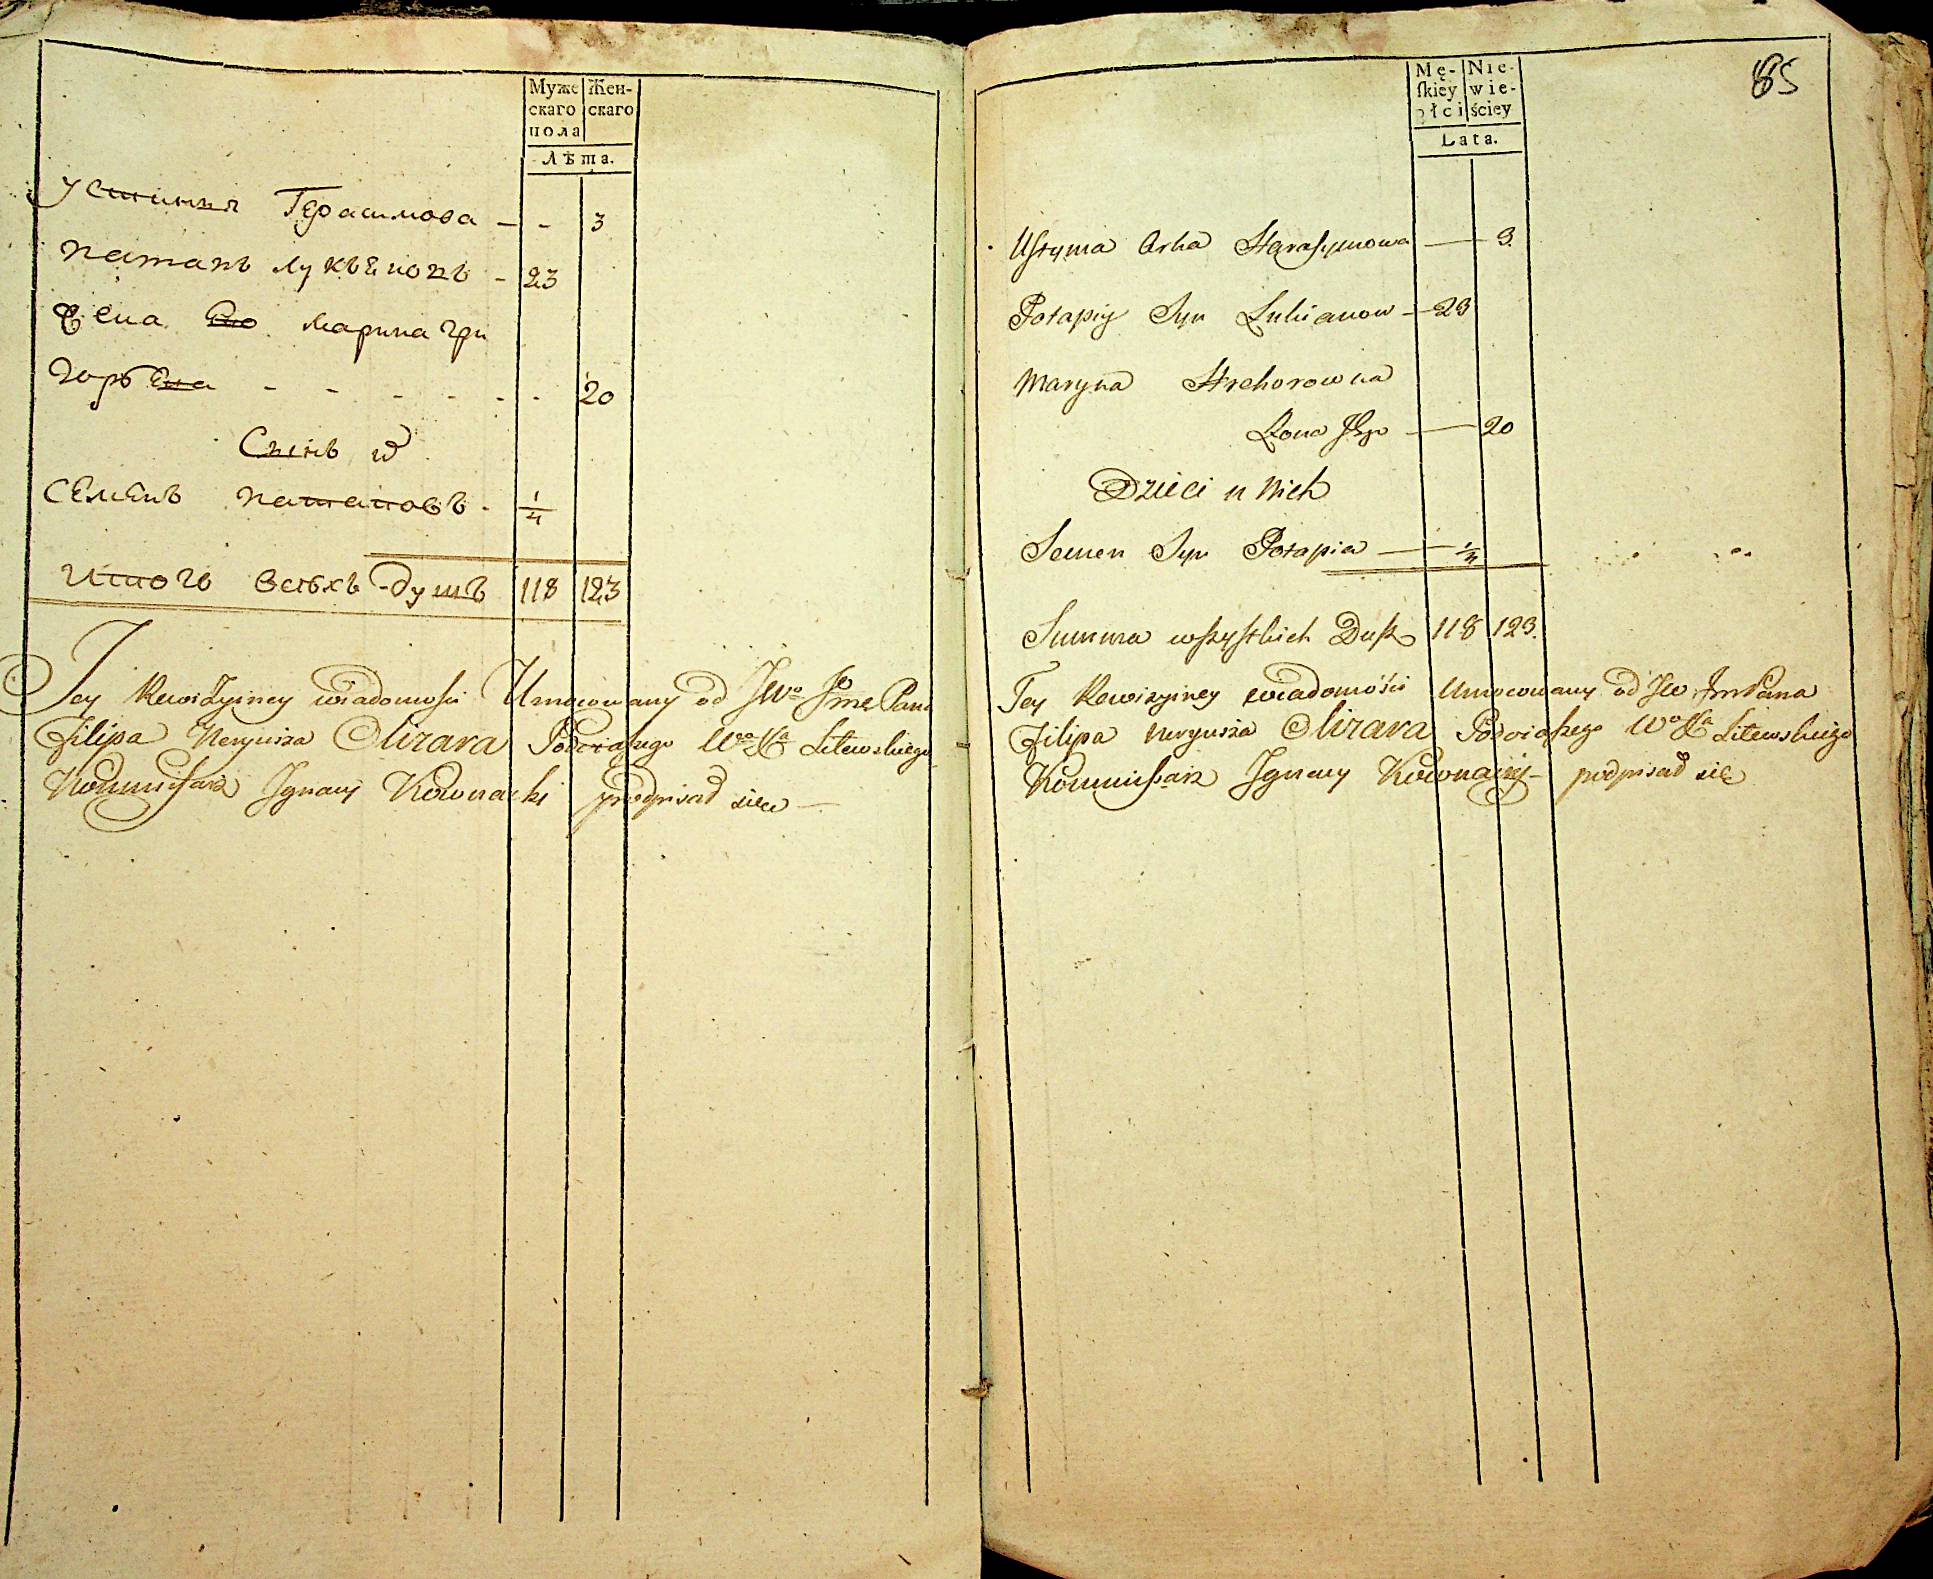 Муже Жен-
скаго скаго
пола
Лѣта.
Устиния Герасимова - - 3
Патапъ Лукьяновъ - 23
Жена Ево Марина Гри
горьева - - - - - - 20
Сынъ
Семенъ Патаповъ - 1/4
Итого всѣхъ душъ 118 123
Tey Rewizyiney wiadomości Umocowany od JWo Jme Pana
Filipa Neryusza Olizara Podczaszego Wo Xa Litewskiego
Kommisarz Ignacy Kownacki podpisał się
85
Mę- Nie-
skiey wie-
płci ściey
Lata.
Ustyma Corka Harasymowa — 3.
Potapiy Syn Lukianow — 23
Maryna Hrehorowna
Żona Jego — 20
Dzieci u Nich
Semen Syn Potapia — 1/4
Summa wszystkich Dusz 118 123.
Tey Rewizyiney wiadomości Umocowany od JW JmPana
Filipa Neryusza Olizara Podczaszego Wo Xa Litewskiego
Kommissarz Ignacy Kownacki podpisał się